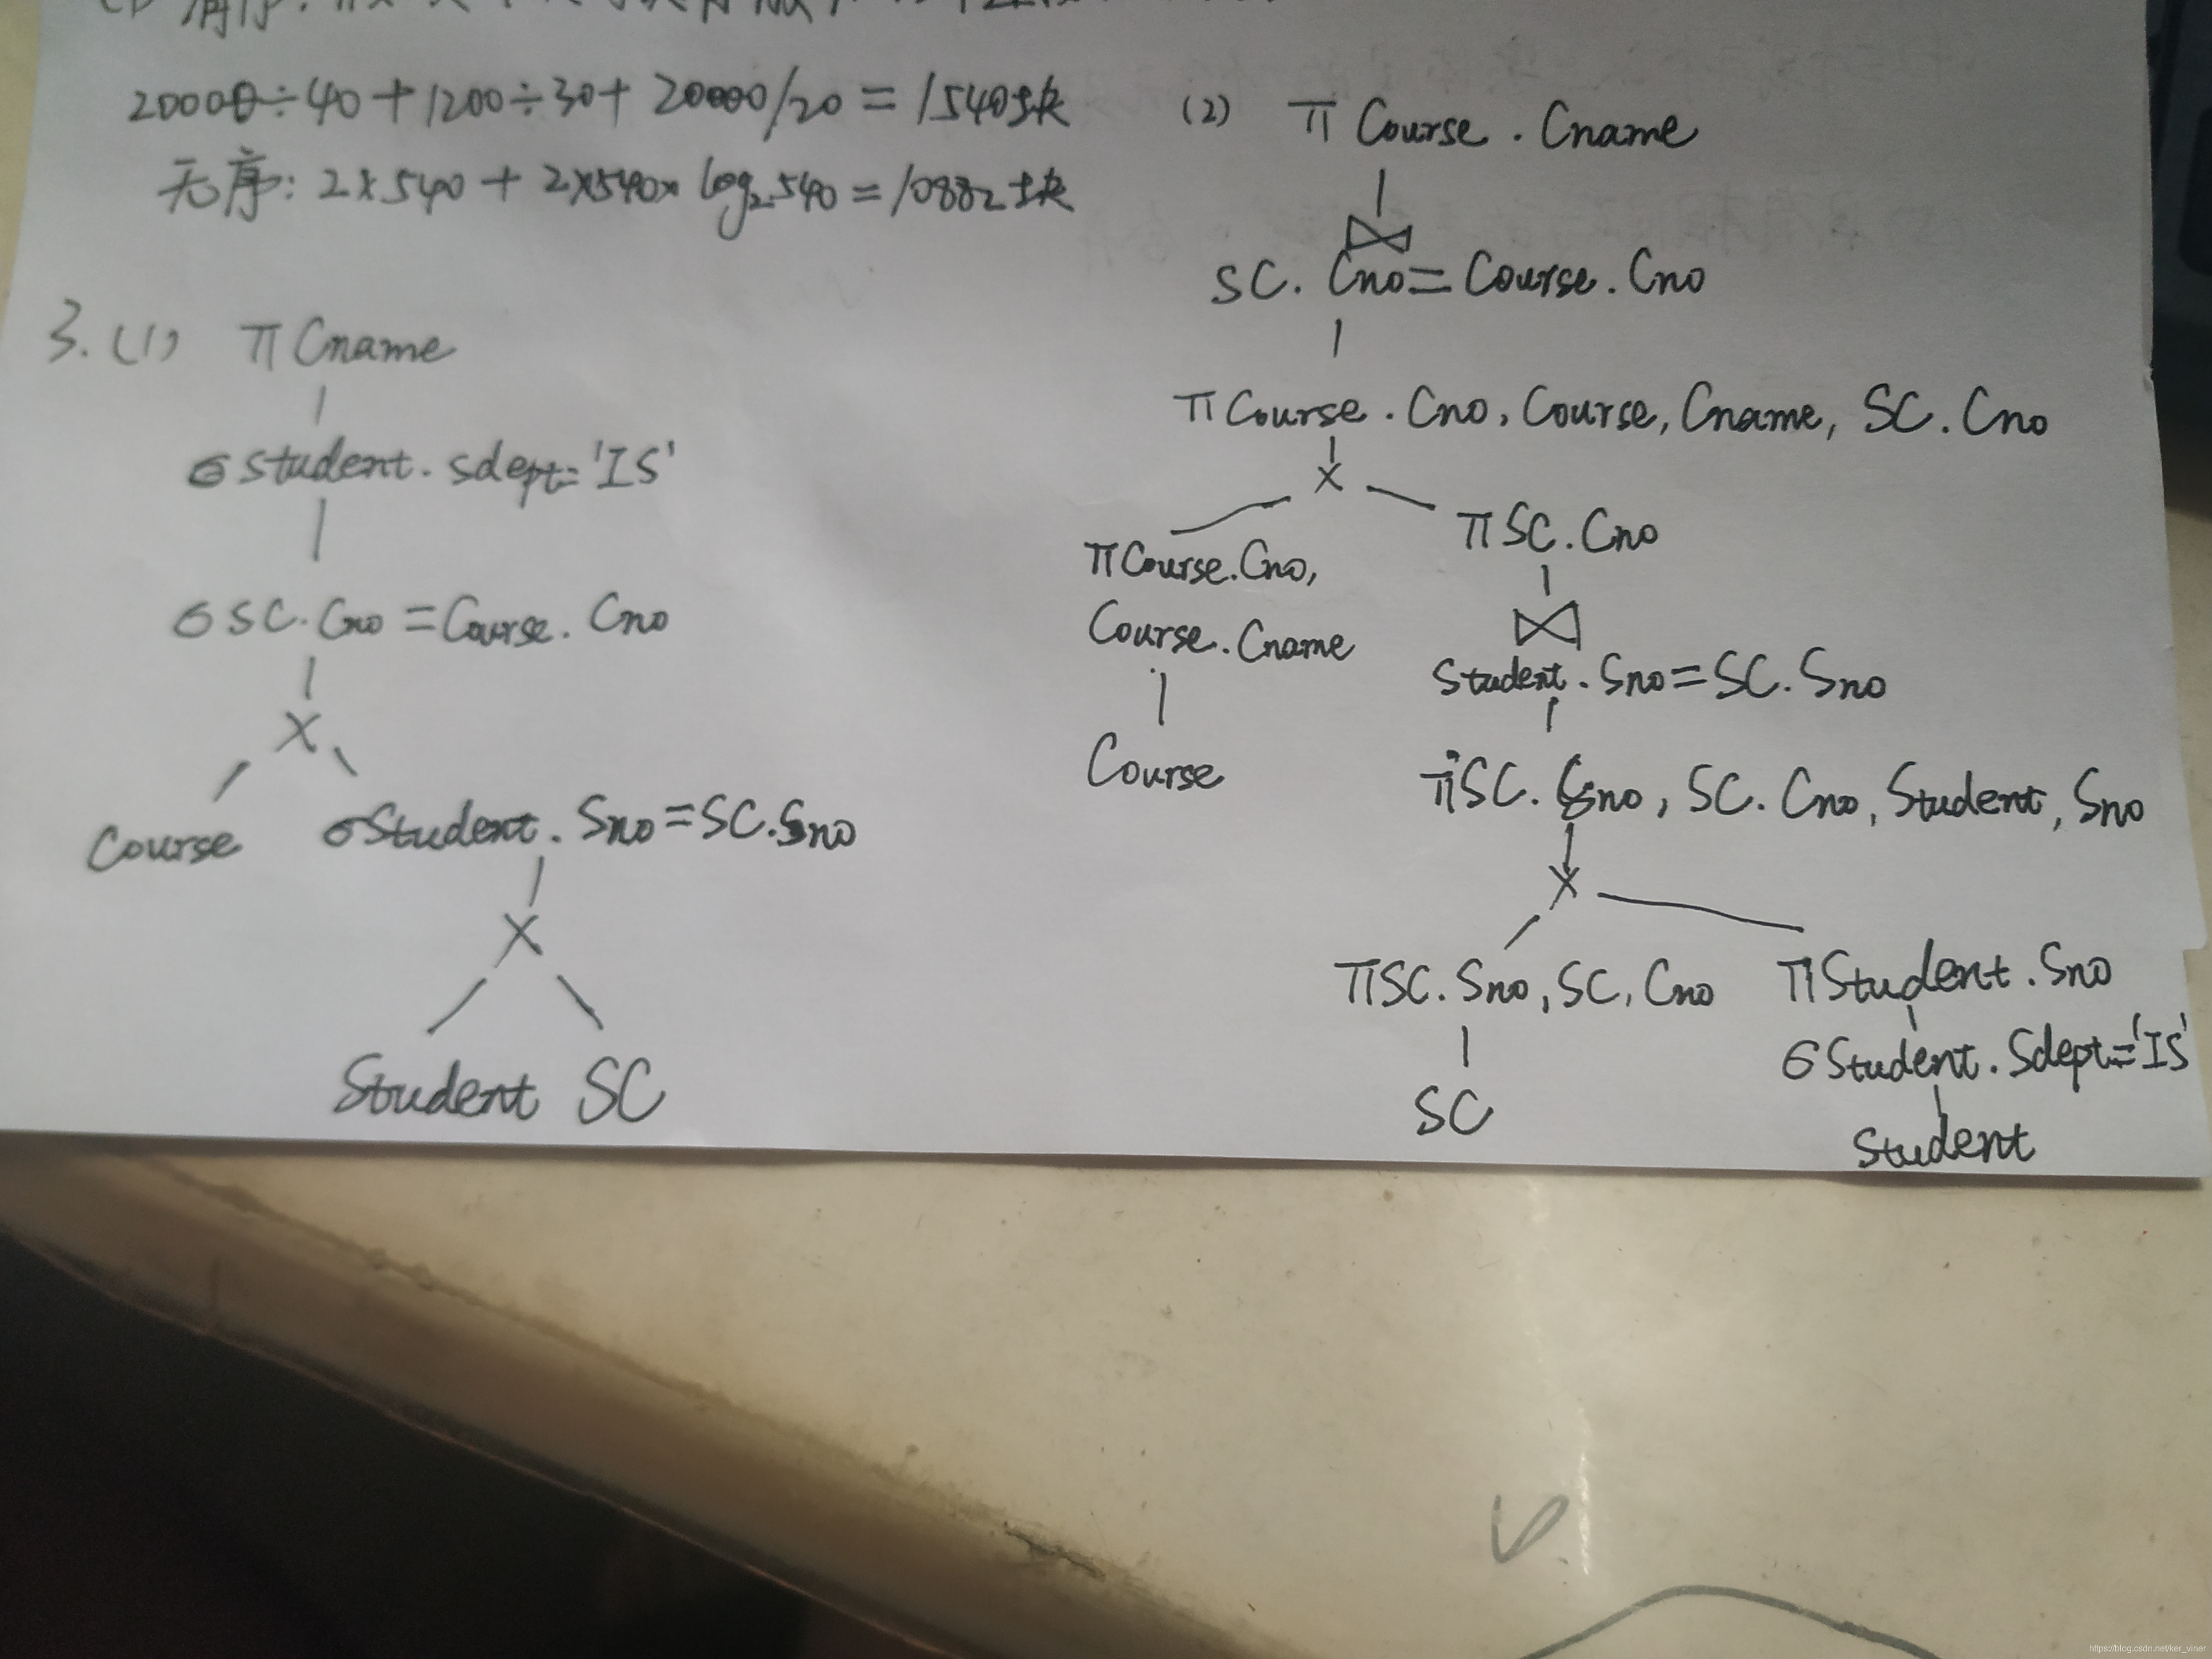 20000÷40+1200÷30+20000/20=1540块
无序:2×540+2×540×log₂540=10882块
3.(1) π Cname
σ Student.Sdept='IS'
σ SC.Cno=Course.Cno
×
Course σ Student.Sno=SC.Sno
×
Student SC
(2) π Course.Cname
⋈
SC.Cno=Course.Cno
π Course.Cno,Course,Cname,SC.Cno
×
π SC.Cno
π Course.Cno,
Course.Cname
Course
⋈
Student.Sno=SC.Sno
π SC.Sno,SC.Cno,Student,Sno
×
π SC.Sno,SC,Cno π Student.Sno
SC
σ Student.Sdept='IS'
Student
https://blog.csdn.net/ker_viner